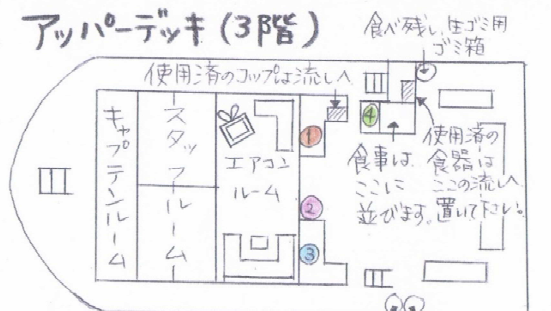 アッパーデッキ(3階)
食べ残し、生ゴミ用
ゴミ箱
使用済のコップは流しへ
キャプテンルーム
スタッフルーム
エアコン
ルーム
1
2
3
4
食事は
ここに
並びます。
使用済の
食器は
ここの流しへ
置いて下さい。